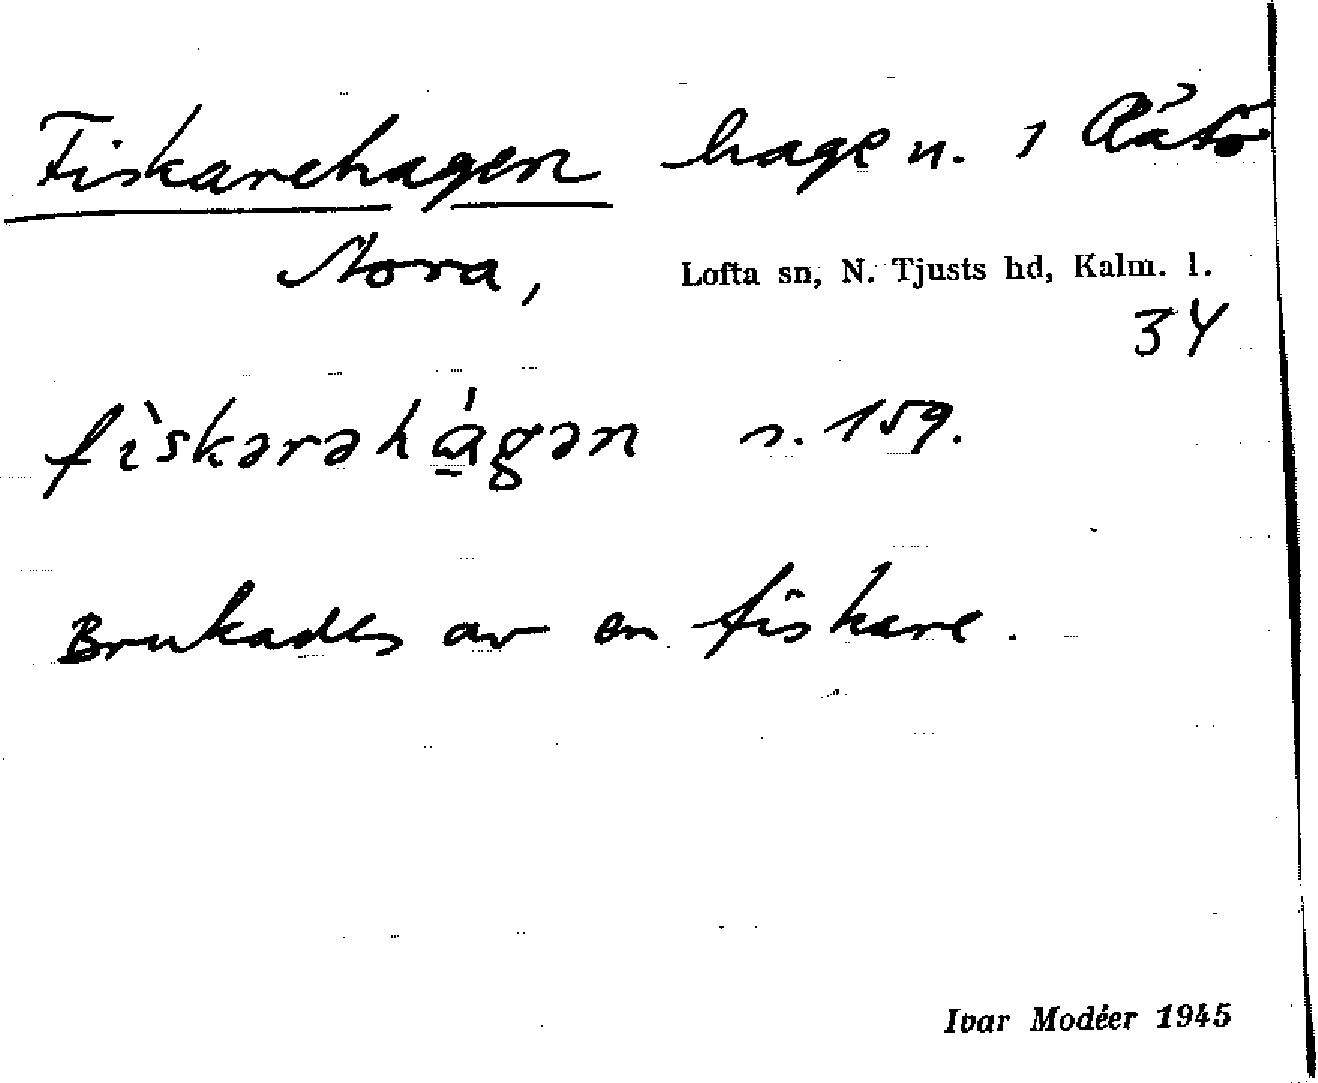 Fiskarehagen hage n. 1 Råtö
Nora, Lofta sn, N. Tjusts hd, Kalm. l.
34
fìskərəhágən s. 159.
Brukades av en fiskare.
Ivar Modéer 1945